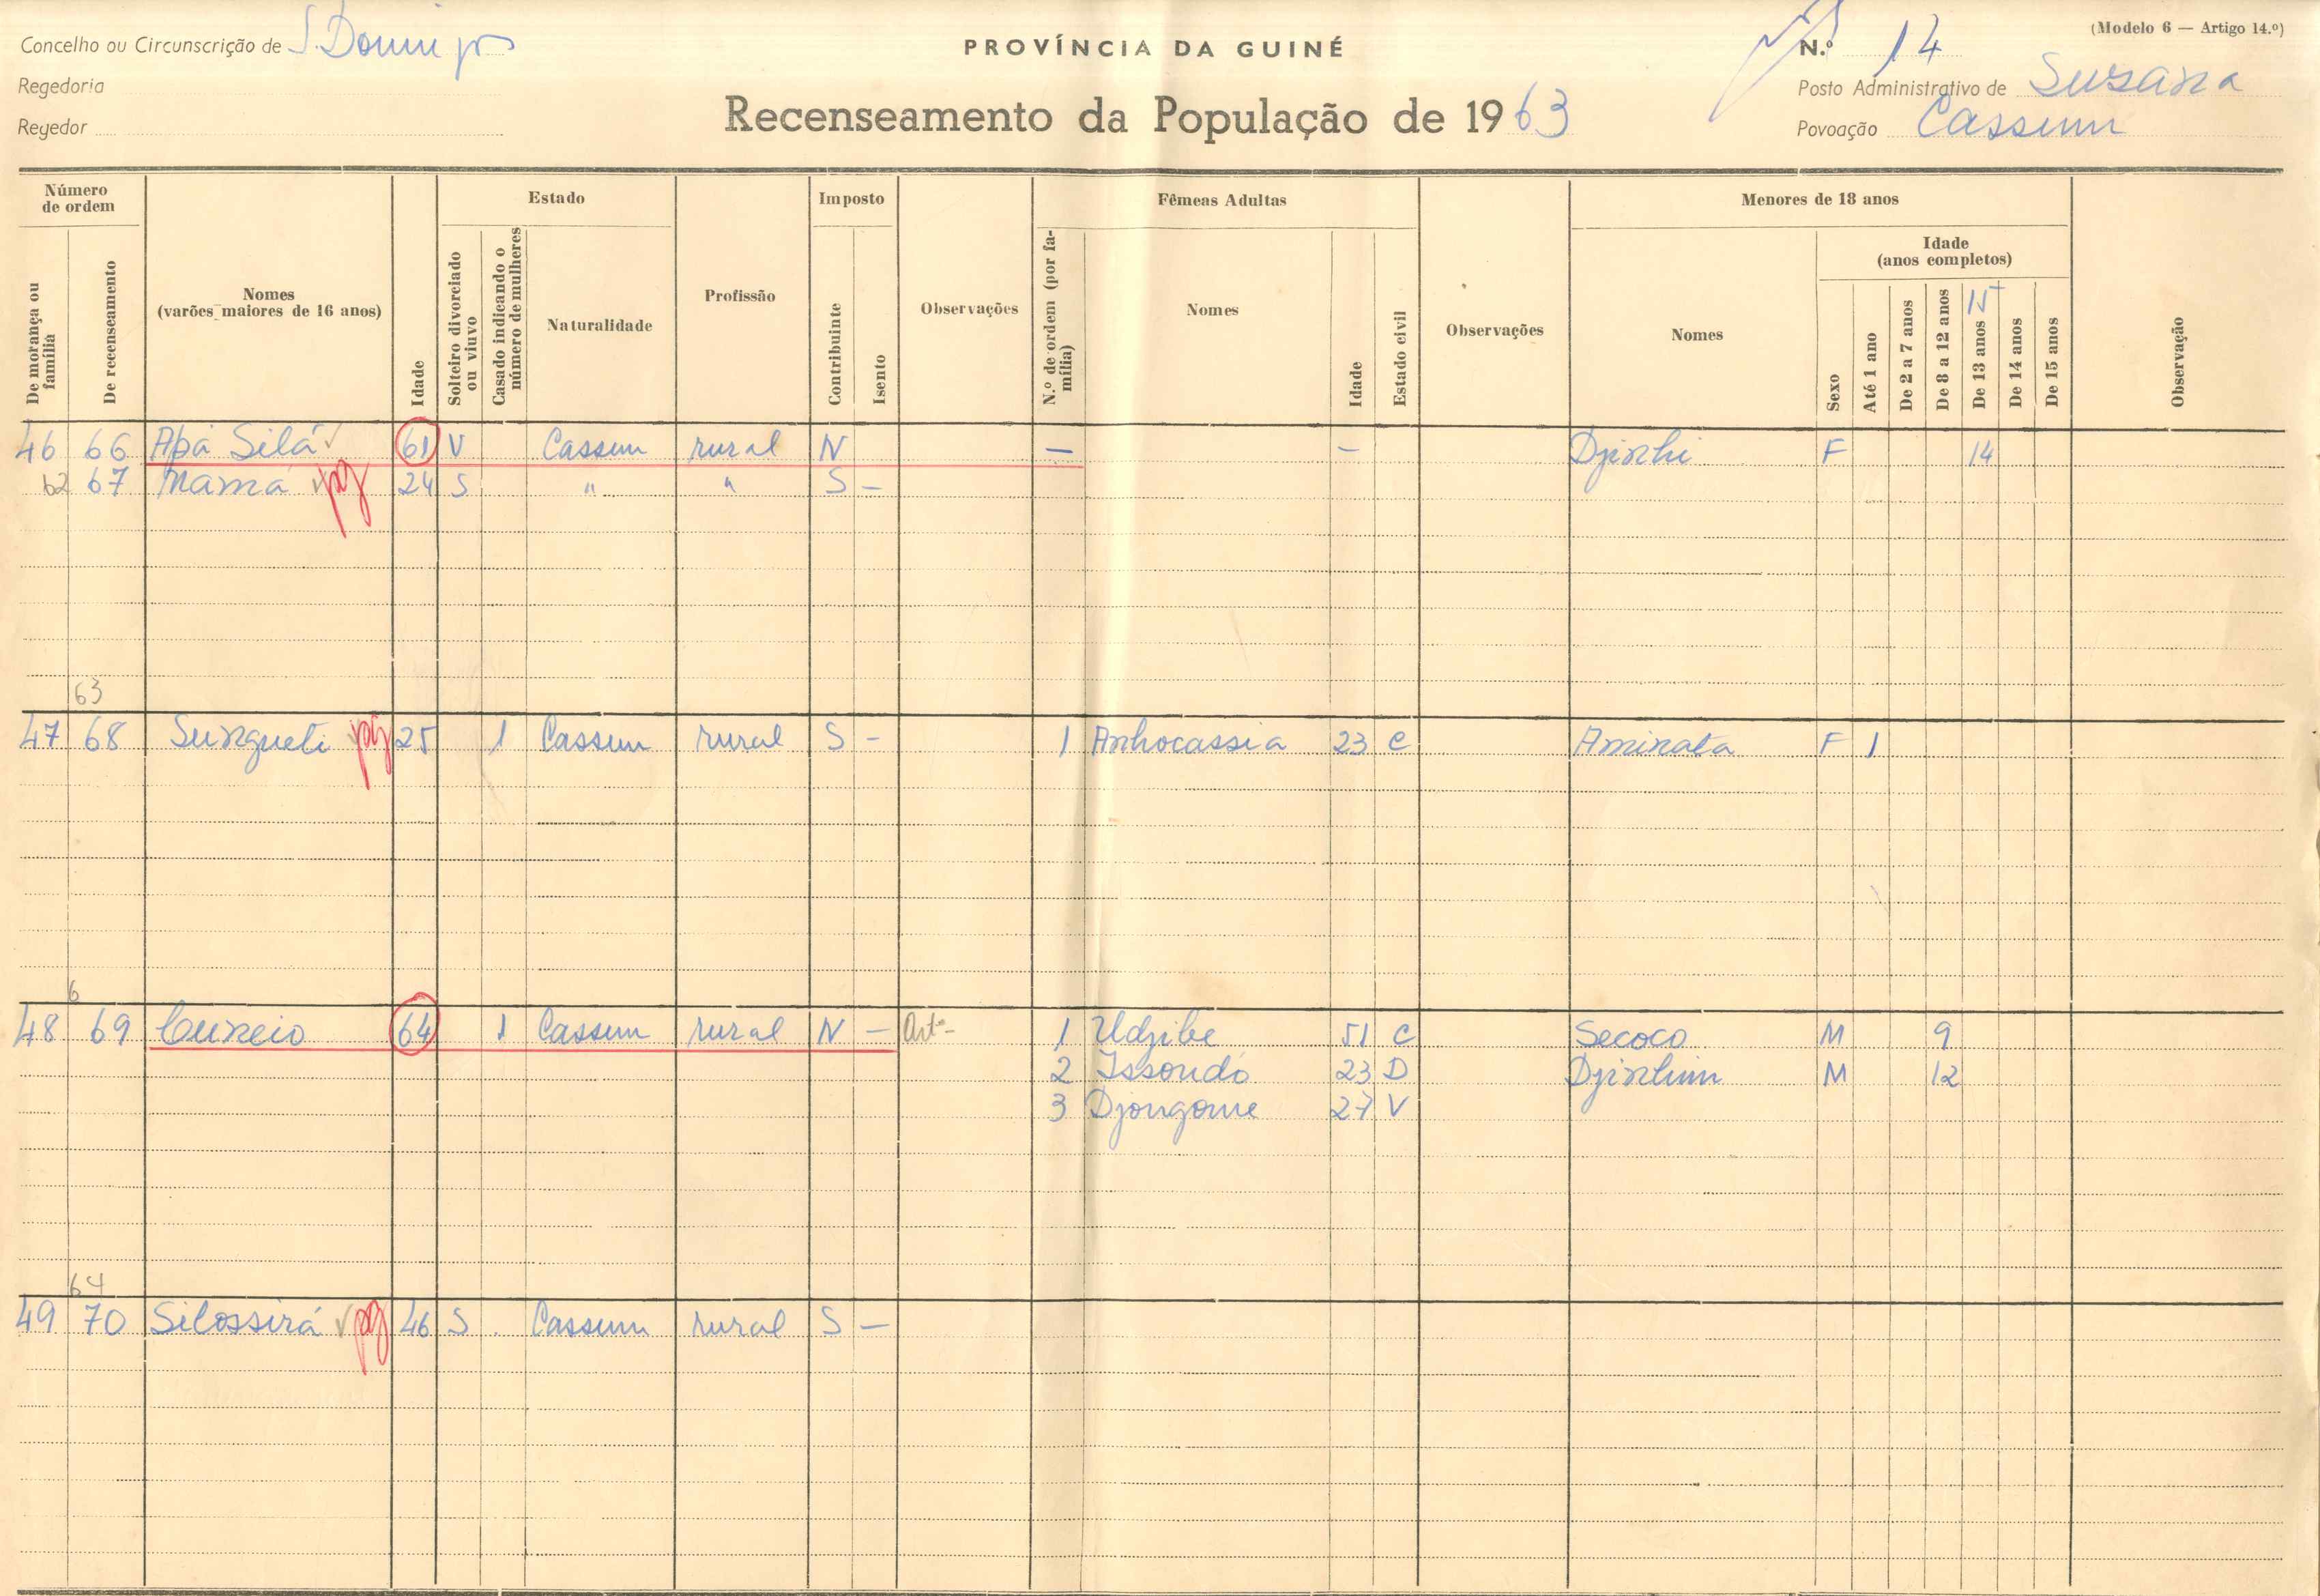 (Modelo 6 — Artigo 14.º)
Concelho ou Circunscrição de S. Domingos
PROVÍNCIA DA GUINÉ
N.º 14
Regedoria
Posto Administrativo de Susana
Regedor
Recenseamento da População de 1963
Povoação Cassum
Número de ordem
Estado
Imposto
Fêmeas Adultas
Menores de 18 anos
De morança ou família
De recenseamento
Nomes
(varões maiores de 16 anos)
Idade
Solteiro divorciado ou viuvo
Casado indicando o número de mulheres
Naturalidade
Profissão
Contribuinte
Isento
Observações
N.º de ordem (por família)
Nomes
Idade
Estado civil
Observações
Nomes
Sexo
Idade
(anos completos)
Até 1 ano
De 2 a 7 anos
De 8 a 12 anos
De 13 anos 15
De 14 anos
De 15 anos
Observação
46 66 Apá Silá 61 V Cassum rural N — — Djinhi F 14
62 67 Mamá pg 24 S " " S —
63
47 68 Sungueti pg 25 1 Cassum rural S — 1 Anhocassia 23 C Aminata F 1
6
48 69 Cuneio 64 1 Cassum rural N — Art.º 1 Udjibe 51 C Secoco M 9
2 Issondó 23 D Djinhim M 12
3 Djongome 27 V
64
49 70 Silossirá pg 46 S Cassum rural S —